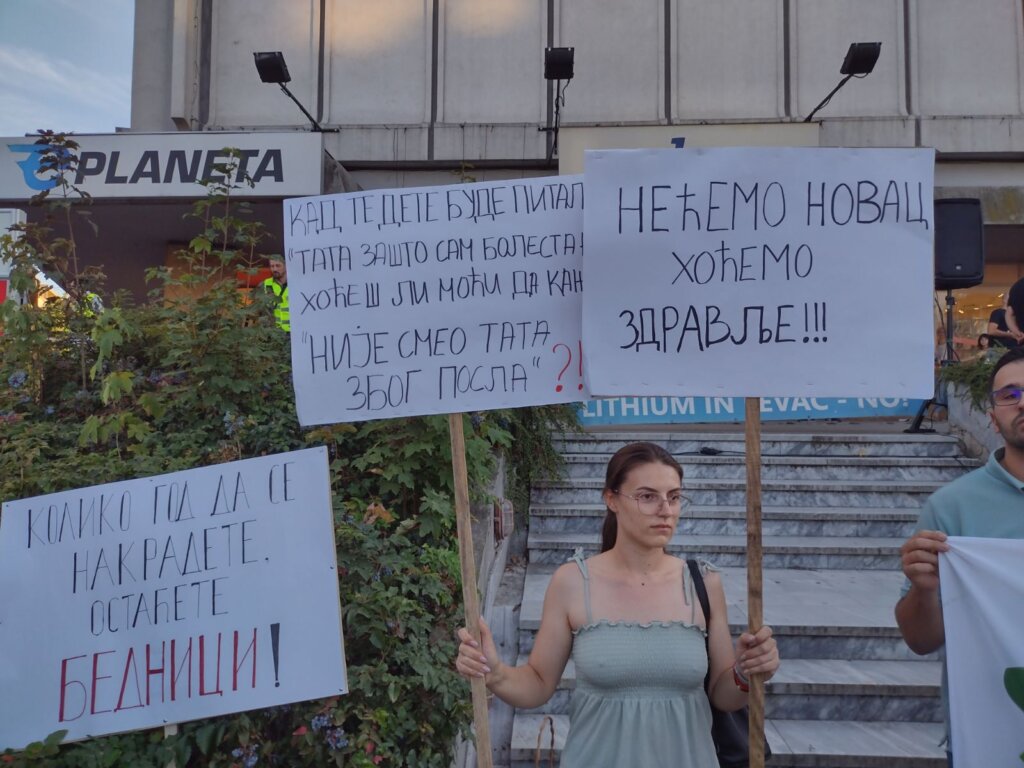 PLANETA
КАД ТЕ ДЕТЕ БУДЕ ПИТАЛ
"ТАТА ЗАШТО САМ БОЛЕСТА
ХОЋЕШ ЛИ МОЋИ ДА КАЖ
"НИЈЕ СМЕО ТАТА
ЗБОГ ПОСЛА" ?!
НЕЋЕМО НОВАЦ
ХОЋЕМО
ЗДРАВЉЕ!!!
LITHIUM IN EVAC - NO!
КОЛИКО ГОД ДА СЕ
НАКРАДЕТЕ,
ОСТАЋЕТЕ
БЕДНИЦИ!